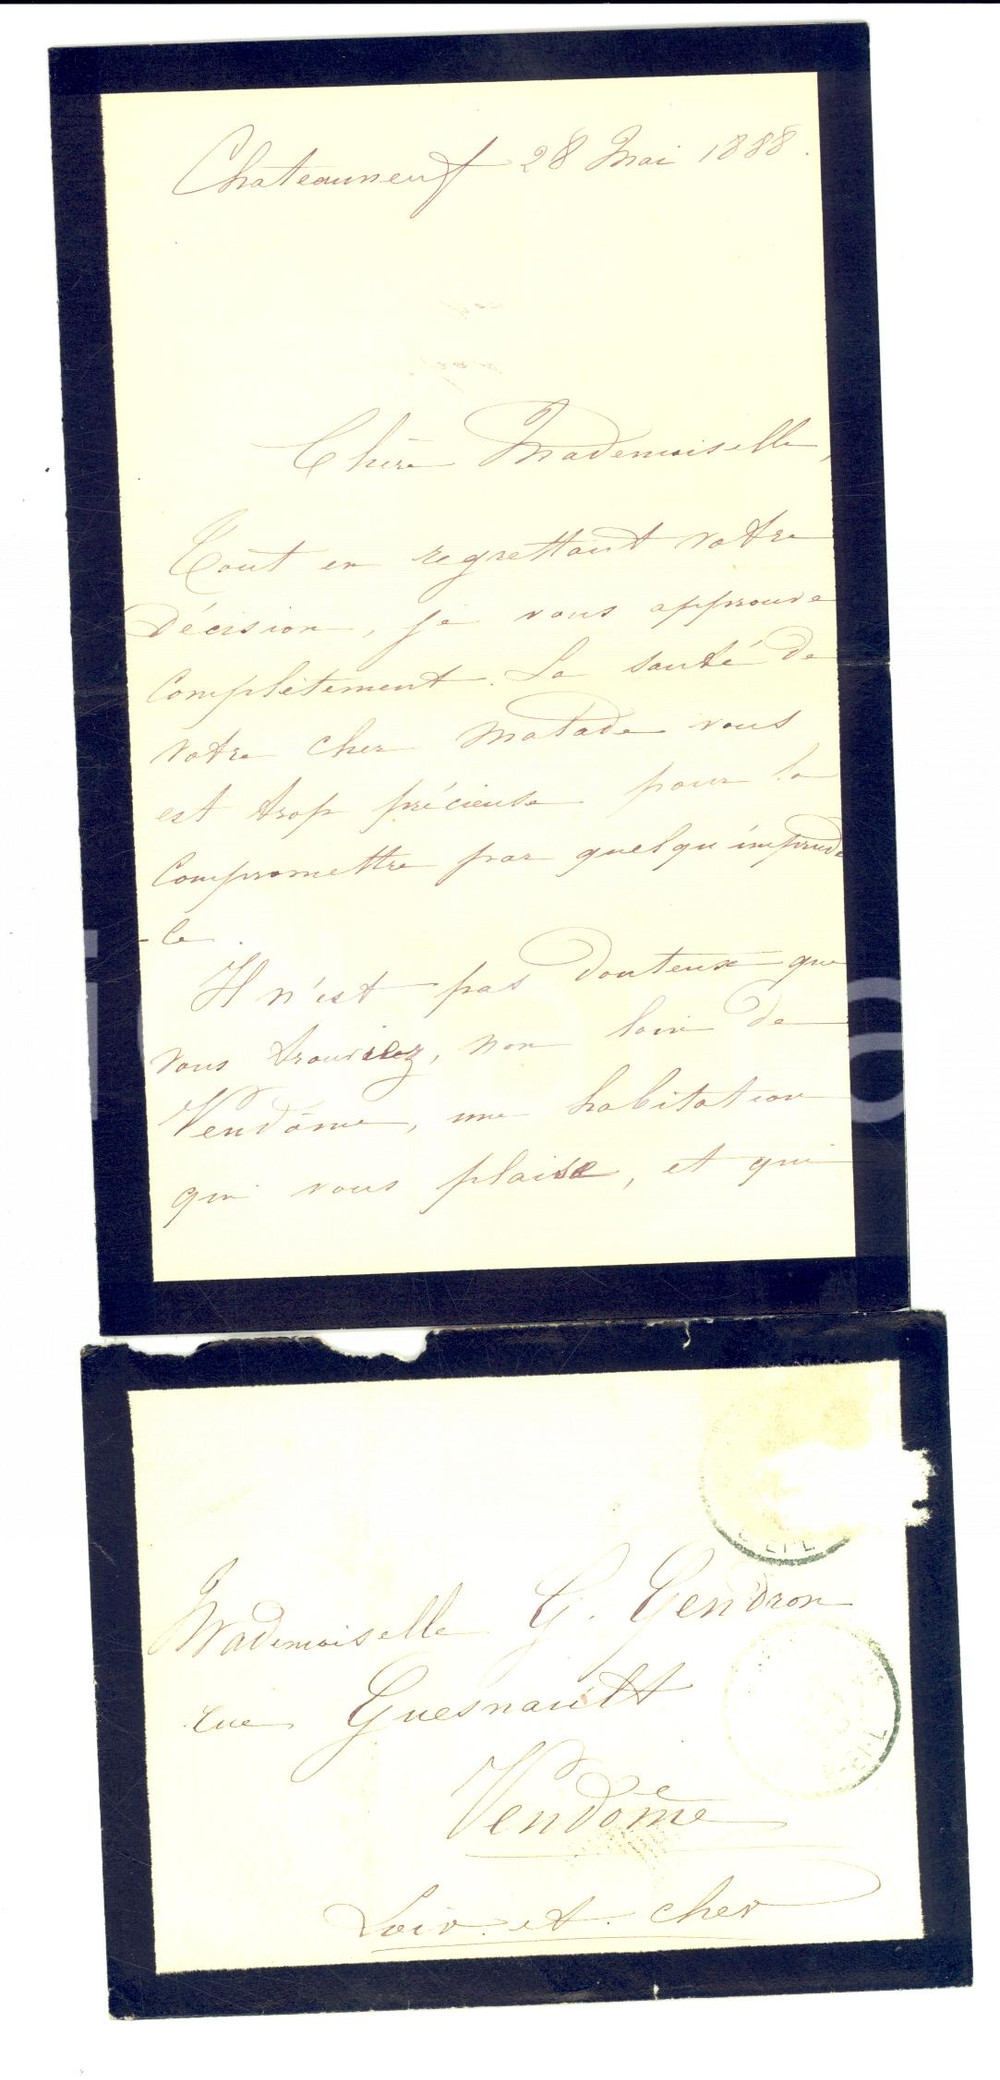 Chateauneuf 28 Mai 1888.
Chère Mademoiselle,
Tout en regrettant votre
décision, je vous approuve
complètement. La santé de
votre cher malade vous
est trop précieuse pour la
compromettre par quelqu'impruden
-ce.
Il n'est pas douteux que
vous trouviez, non loin de
Vendôme, une habitation
qui vous plaise, et qui
Mademoiselle G. Gendron
rue Guesnault
Vendôme
Loir et cher